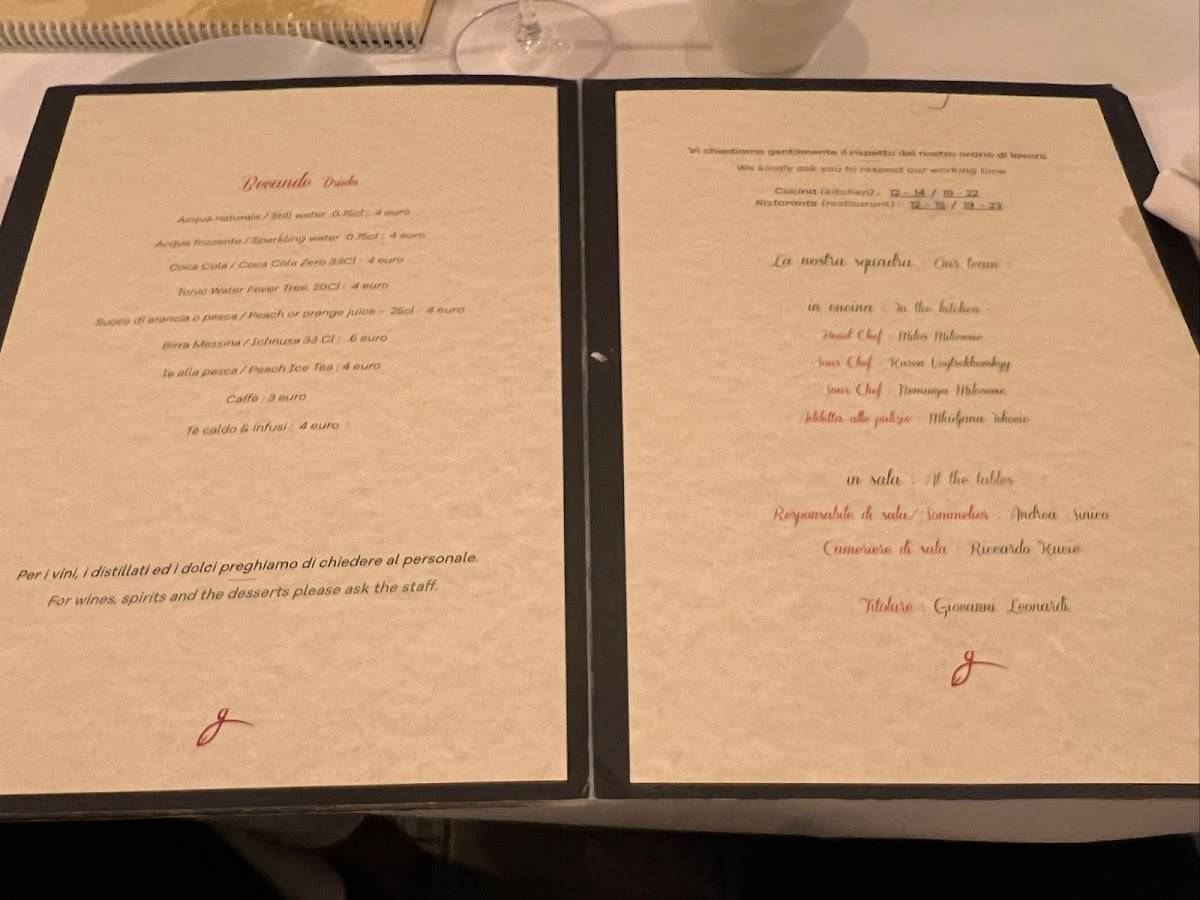 Bevande Drinks
Acqua naturale / Still water 0.75cl : 4 euro
Acqua frizzante / Sparkling water 0.75cl : 4 euro
Coca Cola / Coca Cola Zero 33Cl : 4 euro
Tonic Water Fever Tree 20Cl : 4 euro
Succo di arancia o pesca / Peach or orange juice - 25cl : 4 euro
Birra Messina / Ichnusa 33 Cl : 6 euro
Te alla pesca / Peach Ice Tea : 4 euro
Caffè : 3 euro
Tè caldo & infusi : 4 euro
Per i vini, i distillati ed i dolci preghiamo di chiedere al personale.
For wines, spirits and the desserts please ask the staff.
g
Vi chiediamo gentilmente il rispetto del nostro orario di lavoro
We kindly ask you to respect our working time
Cucina (kitchen) : 12 - 14 / 19 - 22
Ristorante (restaurant) : 12 - 15 / 19 - 23
La nostra squadra : Our team :
in cucina : In the kitchen
Head Chef : Milos
Sous Chef :
Sous Chef :
alla pulizie :
in sala : At the tables
Responsabile di sala/ Sommelier : Andrea
Cameriere di sala : Riccardo
Titolare : Giovanni Leonardi
g